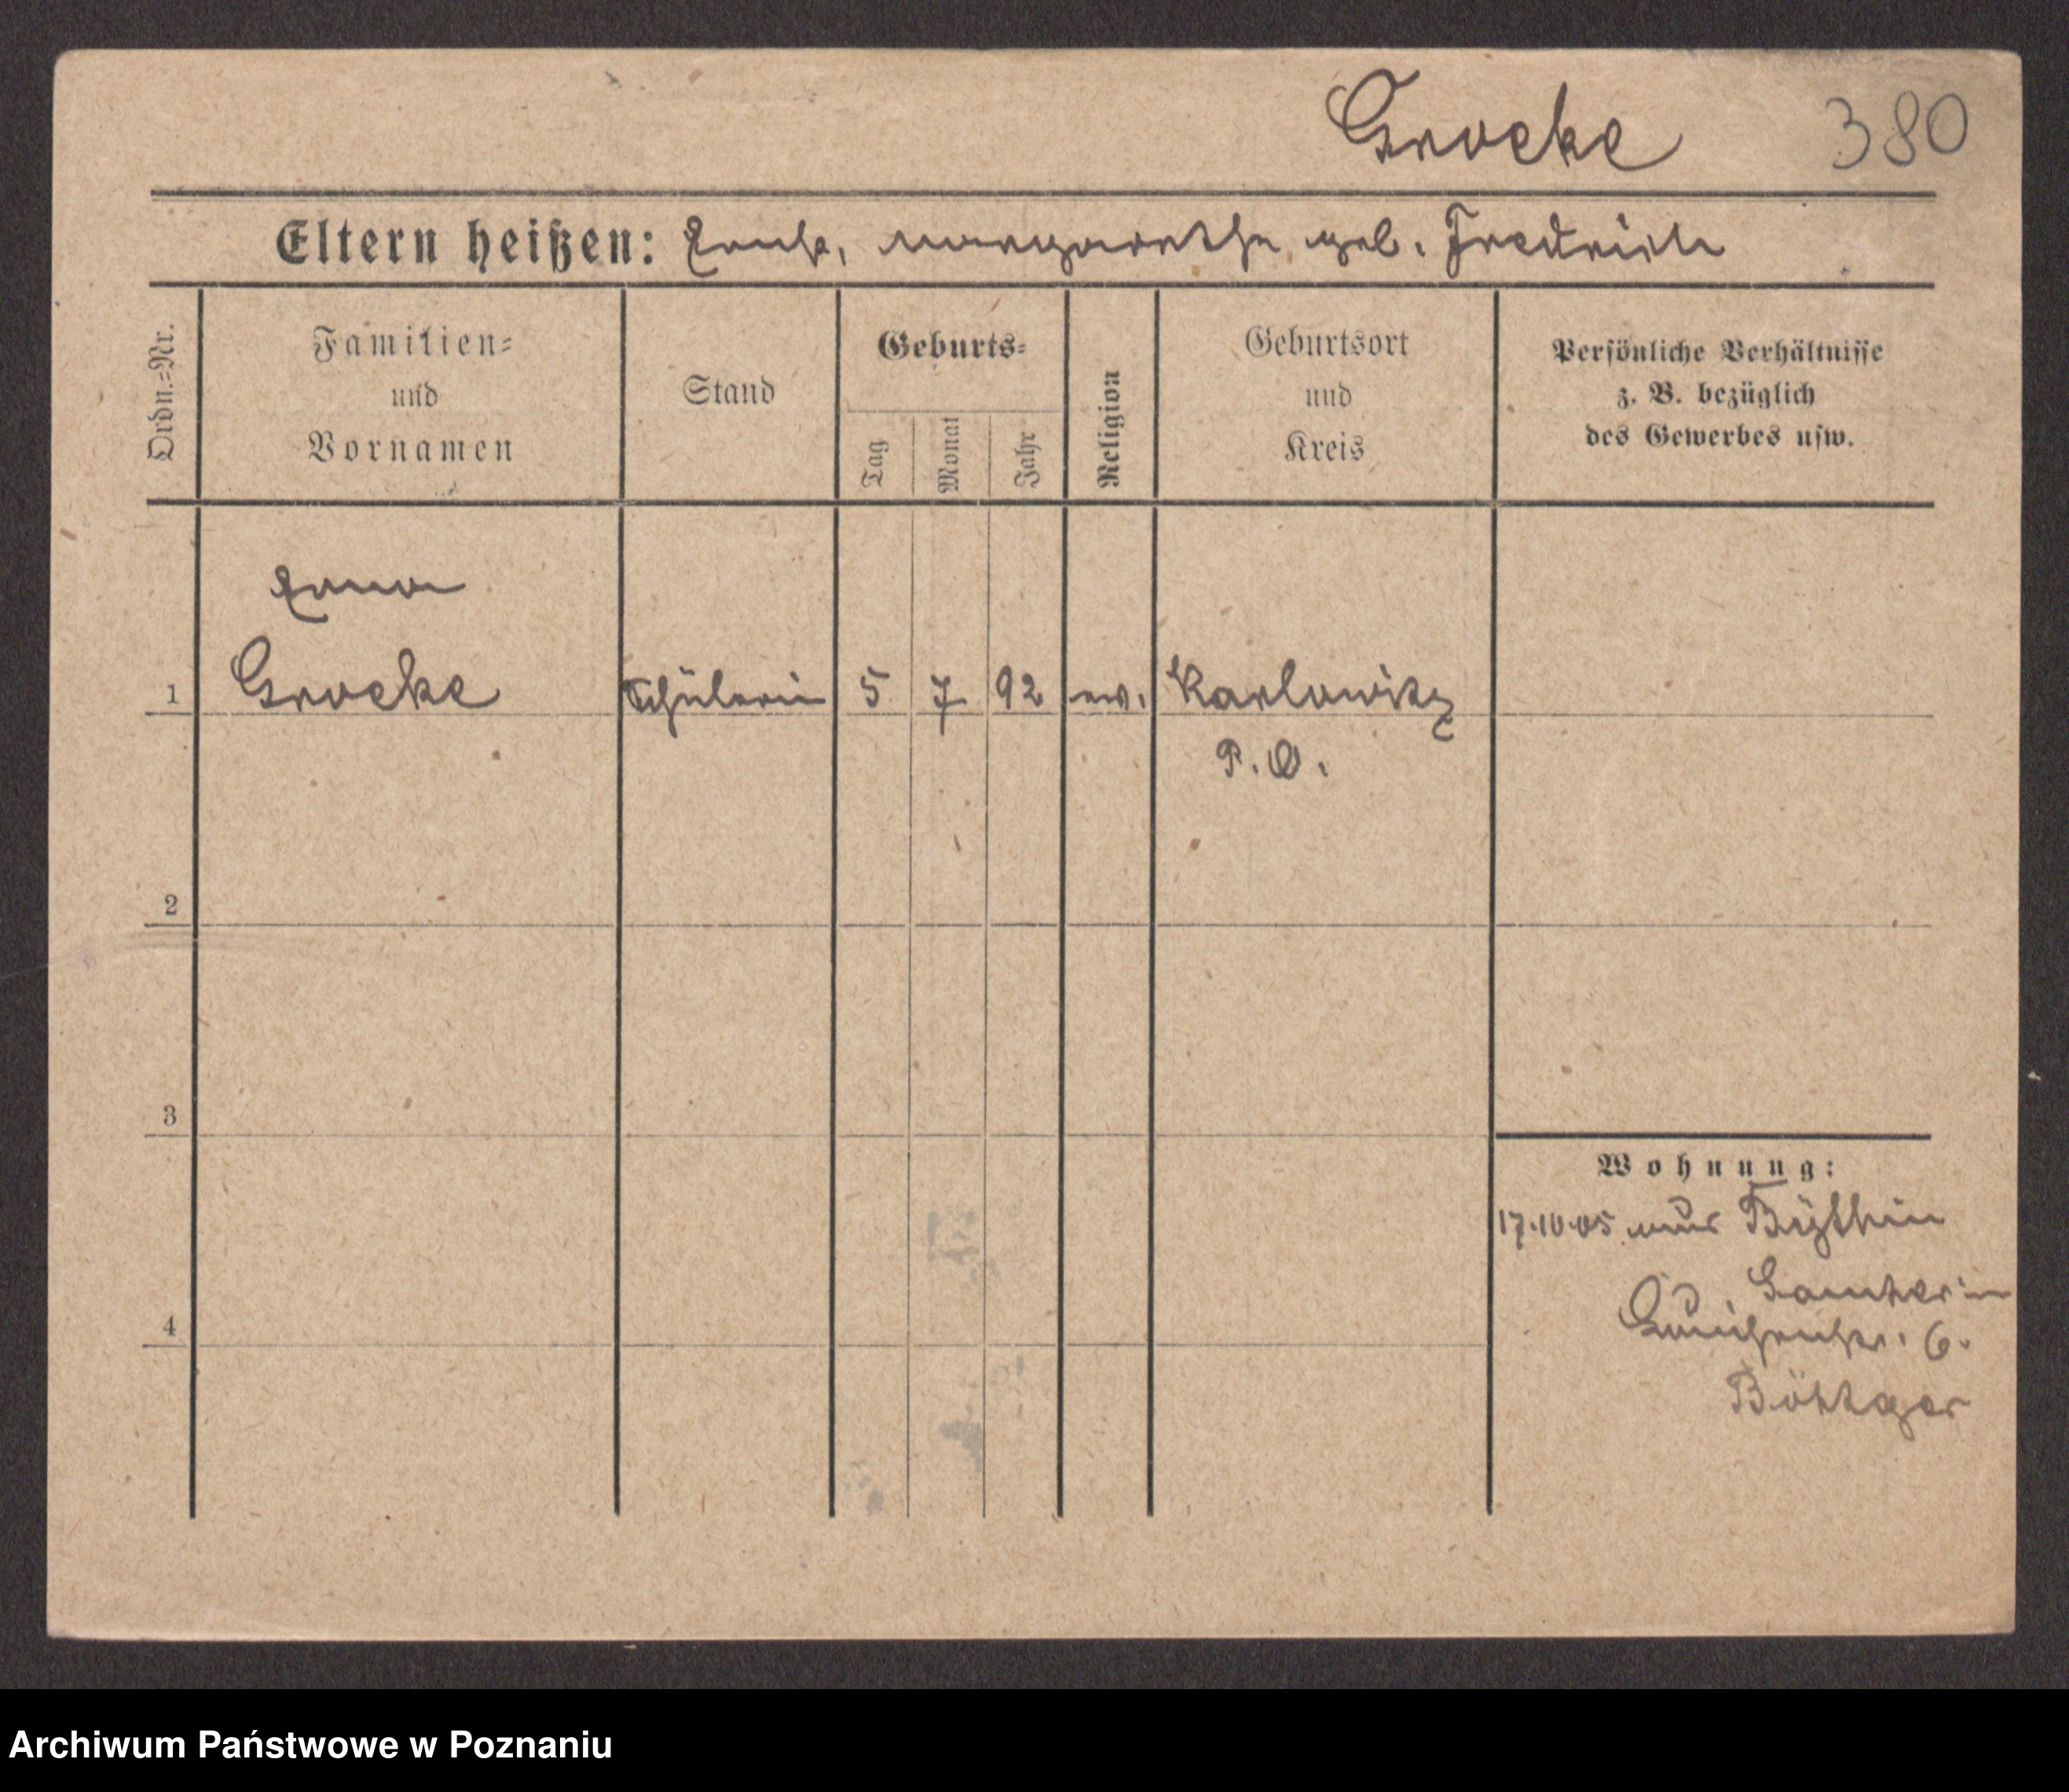 Grocke 380
Eltern heißen: Ernst, Margarethe geb. Fredrich
Ordn.=Nr.
Familien=
und
Vornamen
Stand
Geburts=
Tag
Monat
Jahr
Religion
Geburtsort
und
Kreis
Persönliche Verhältnisse
z. B. bezüglich
des Gewerbes usw.
Erna
1 Grocke Schülerin 5 7 92 ev. Karlowitz
P. O.
2
3
4
Wohnung:
17.10.05 aus Bythin
Kr. Samter in
Luisenstr. 6.
Böttger
Archiwum Państwowe w Poznaniu